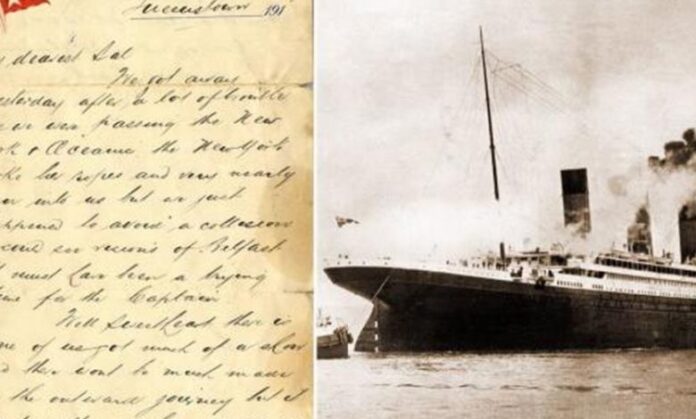 Queenstown 191
y dearest Lal
We got away
esterday after a lot of trouble
we were passing the New
ork & Oceanic the New York
oke her ropes and very nearly
an into us but we just
appened to avoid a collision
could see visions of Belfast
t must have been a trying
ime for the Captain
Well Sweetheart there is
ne of us got much of a show
d there wont be much made
the outward journey but it